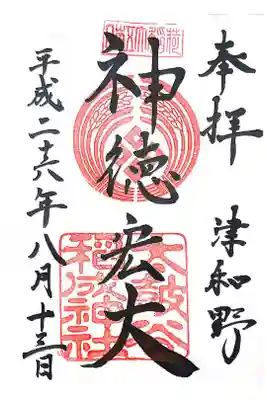 奉拝
津和野
神徳宏大
平成二十六年八月十三日
太皷谷
稲成神社